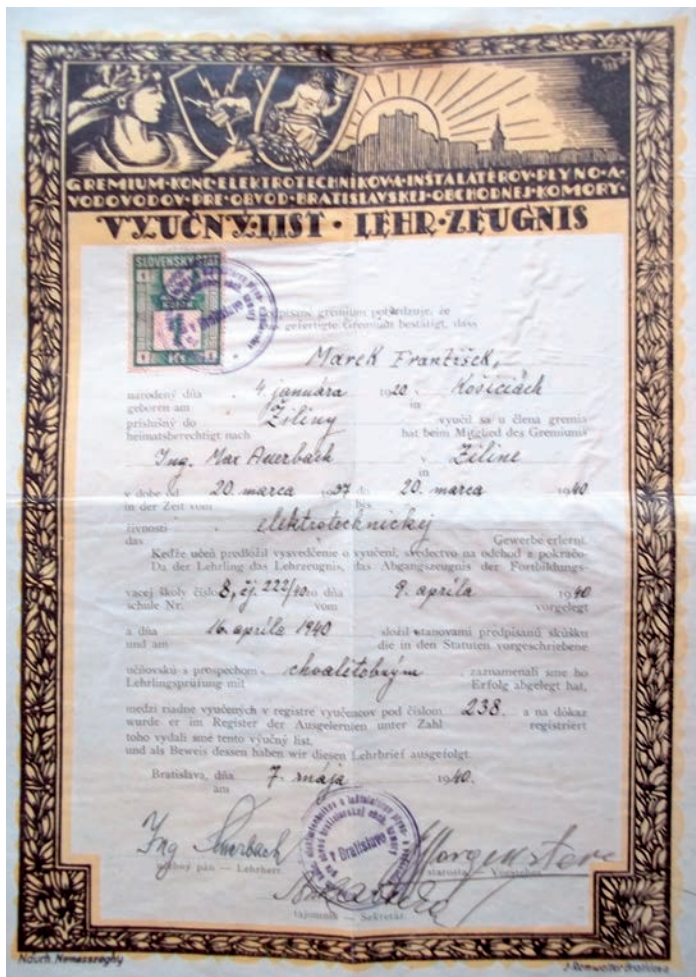 GREMIUM·KONC·ELEKTROTECHNIKOV·A·INŠTALATÉROV·PLYNO·A·
VODOVODOV·PRE·OBVOD·BRATISLAVSKEJ·OBCHODNEJ·KOMORY·
VÝUČNÝ·LIST · LEHR·ZEUGNIS
SLOVENSKÝ ŠTÁT
1 1
KČS
v Bratislave
gremium potvrdzuje, že
gefertigte Gremium bestätigt, dass
Marek František,
narodený dňa 4. januára 1920 v Košiciach
geboren am in
príslušný do Žiliny vyučil sa u člena gremia
heimatsberechtigt nach hat beim Mitglied des Gremiums
Ing. Max Auerbach v Žiline
in
v dobe od 20. marca 1937 do 20. marca 1940
in der Zeit vom bis
živnosti elektrotechnickej
das Gewerbe erlernt.
Keďže učeň predložil vysvedčenie o vyučení, svedectvo na odchod z pokračo-
Da der Lehrling das Lehrzeugnis, das Abgangszeugnis der Fortbildungs-
vacej školy číslo 8, čj. 222/40 zo dňa 9. apríla 1940
schule Nr. vom vorgelegt
a dňa 16. apríla 1940 složil stanovami predpísanú skúšku
und am die in den Statuten vorgeschriebene
učňovskú s prospechom chvalitebným, zaznamenali sme ho
Lehrlingsprüfung mit Erfolg abgelegt hat,
medzi riadne vyučených v registre vyučencov pod číslom 238. a na dôkaz
wurde er im Register der Ausgelernten unter Zahl registriert
toho vydali sme tento výučný list.
und als Beweis dessen haben wir diesen Lehrbrief ausgefolgt.
Bratislava, dňa 7. mája 1940.
am
v Bratislave
Ing Auerbach Morgenstern
učebný pán — Lehrherr. starosta — Vorsteher.
tajomník — Sekretär.